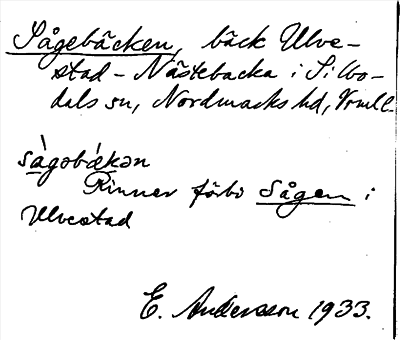 Sågebäcken, bäck Ulve-
stad - Nästebacka i Silbo-
dals sn, Nordmarks hd, Vrml.
sågobäkən
Rinner förbi Sågen i
Ulvestad
E. Andersson 1933.